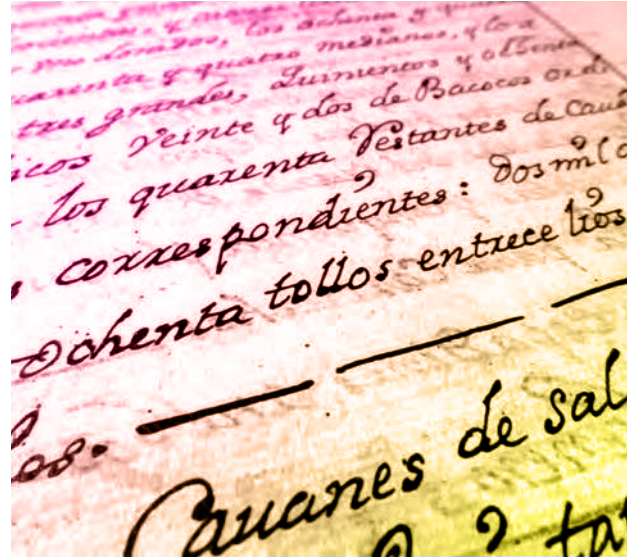 dorados, los ochenta y
quarenta y quatro medianos, y los
tres grandes, Quinientos y ochenta
veinte y dos de Bacocos
los quarenta Restantes de
correspondientes: Dos mil
ochenta tollos entrece lios
Cauanes de sal